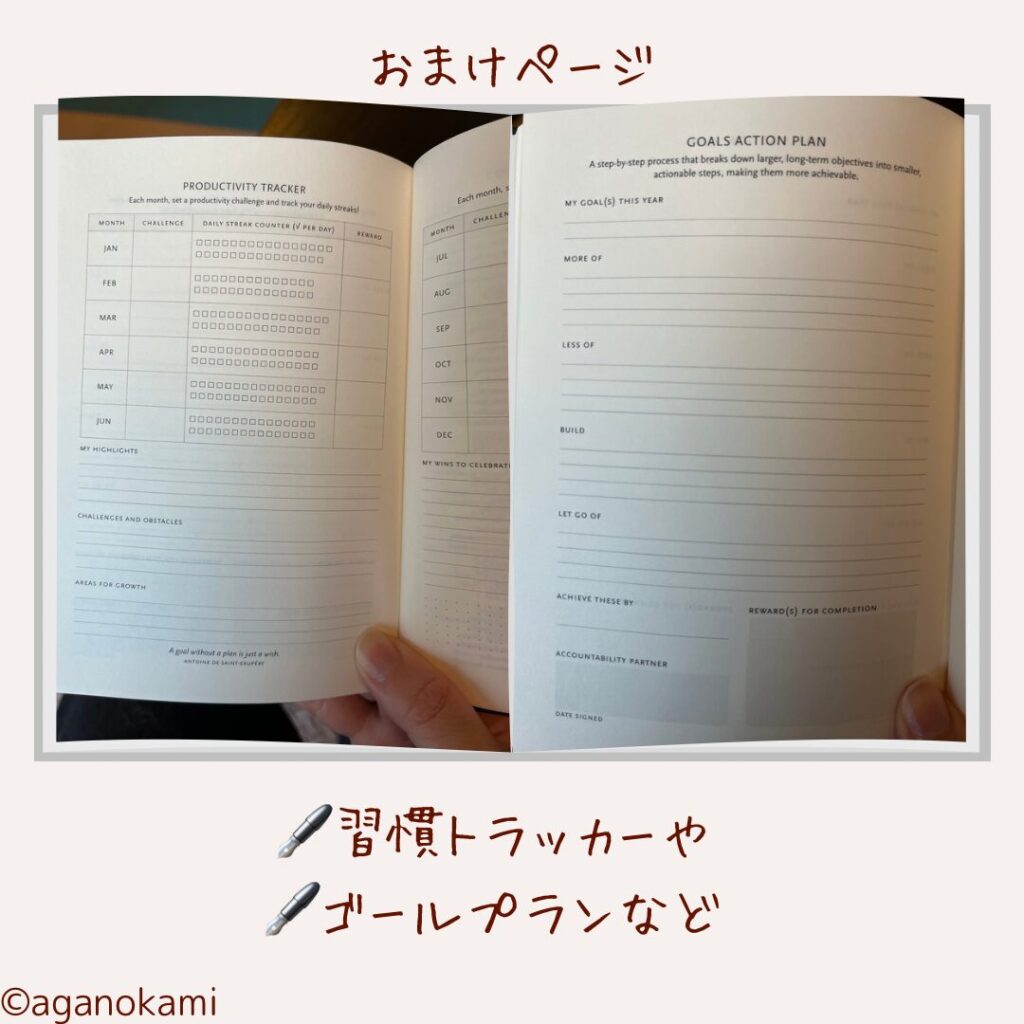 おまけページ
PRODUCTIVITY TRACKER
Each month, set a productivity challenge and track your daily streaks!
MONTH CHALLENGE DAILY STREAK COUNTER (√ PER DAY) REWARD
JAN
FEB
MAR
APR
MAY
JUN
MY HIGHLIGHTS
CHALLENGES AND OBSTACLES
AREAS FOR GROWTH
A goal without a plan is just a wish.
ANTOINE DE SAINT-EXUPÉRY
Each month, s
MONTH CHALLEN
JUL
AUG
SEP
OCT
NOV
DEC
MY WINS TO CELEBRAT
GOALS ACTION PLAN
A step-by-step process that breaks down larger, long-term objectives into smaller,
actionable steps, making them more achievable.
MY GOAL(S) THIS YEAR
MORE OF
LESS OF
BUILD
LET GO OF
ACHIEVE THESE BY
REWARD(S) FOR COMPLETION
ACCOUNTABILITY PARTNER
DATE SIGNED
習慣トラッカーや
ゴールプランなど
©aganokami